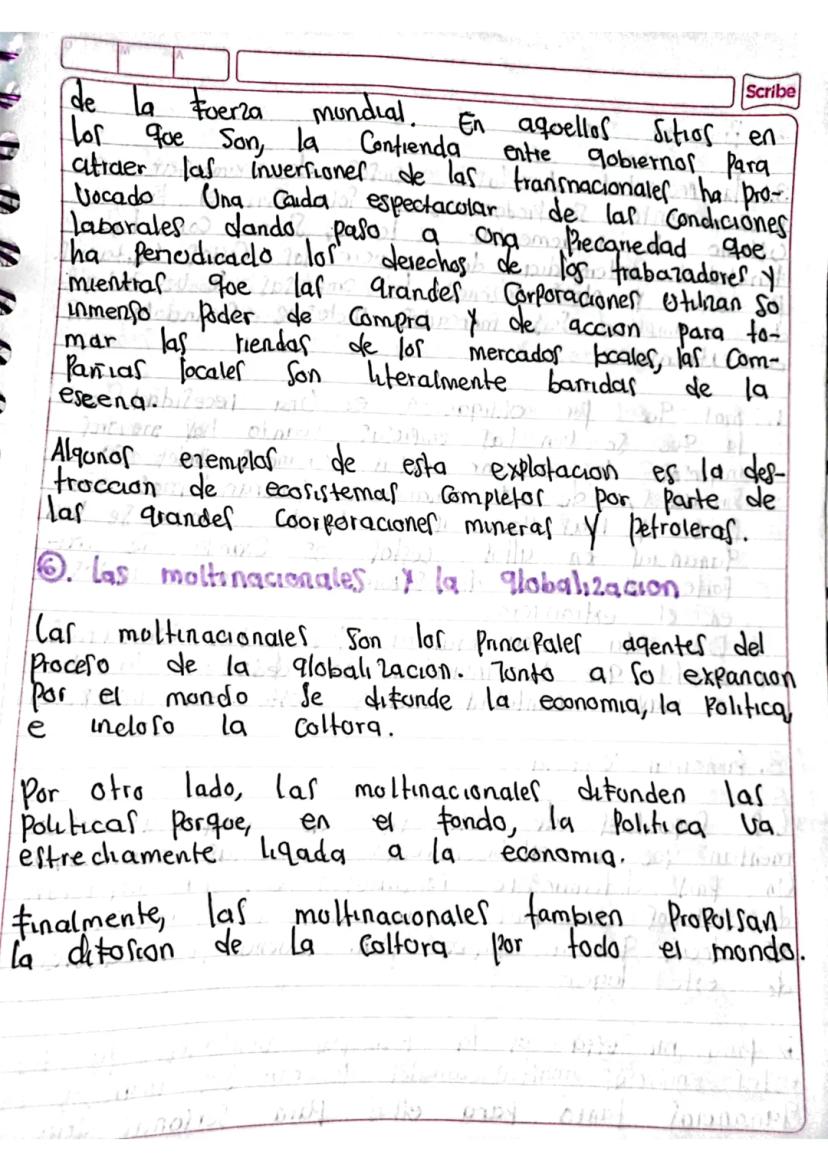 D M A
Scribe
de la fuerza mundial. En aquellos sitios en
los que son, la contienda entre gobiernos para
atraer las inversiones de las transnacionales ha pro-
vocado una caida espectacular de las condiciones
laborales dando paso a una precariedad que
ha periodicado los derechos de los trabajadores y
mientras que las grandes corporaciones utilizan su
inmenso poder de compra y de accion para to-
mar las riendas de los mercados locales, las com-
pañias locales son literalmente barridas de la
escena.
Algunos ejemplos de esta explotacion es la des-
truccion de ecosistemas completos por parte de
las grandes coorporaciones mineras y petroleras.
6. Las multinacionales y la globalizacion
Las multinacionales son los principales agentes del
proceso de la globalizacion. Junto a su expancion
por el mundo se difunde la economia, la politica,
e incluso la cultura.
Por otro lado, las multinacionales difunden las
politicas porque, en el fondo, la politica va
estrechamente ligada a la economia.
Finalmente, las multinacionales tambien propulsan
la difusion de la cultura por todo el mundo.